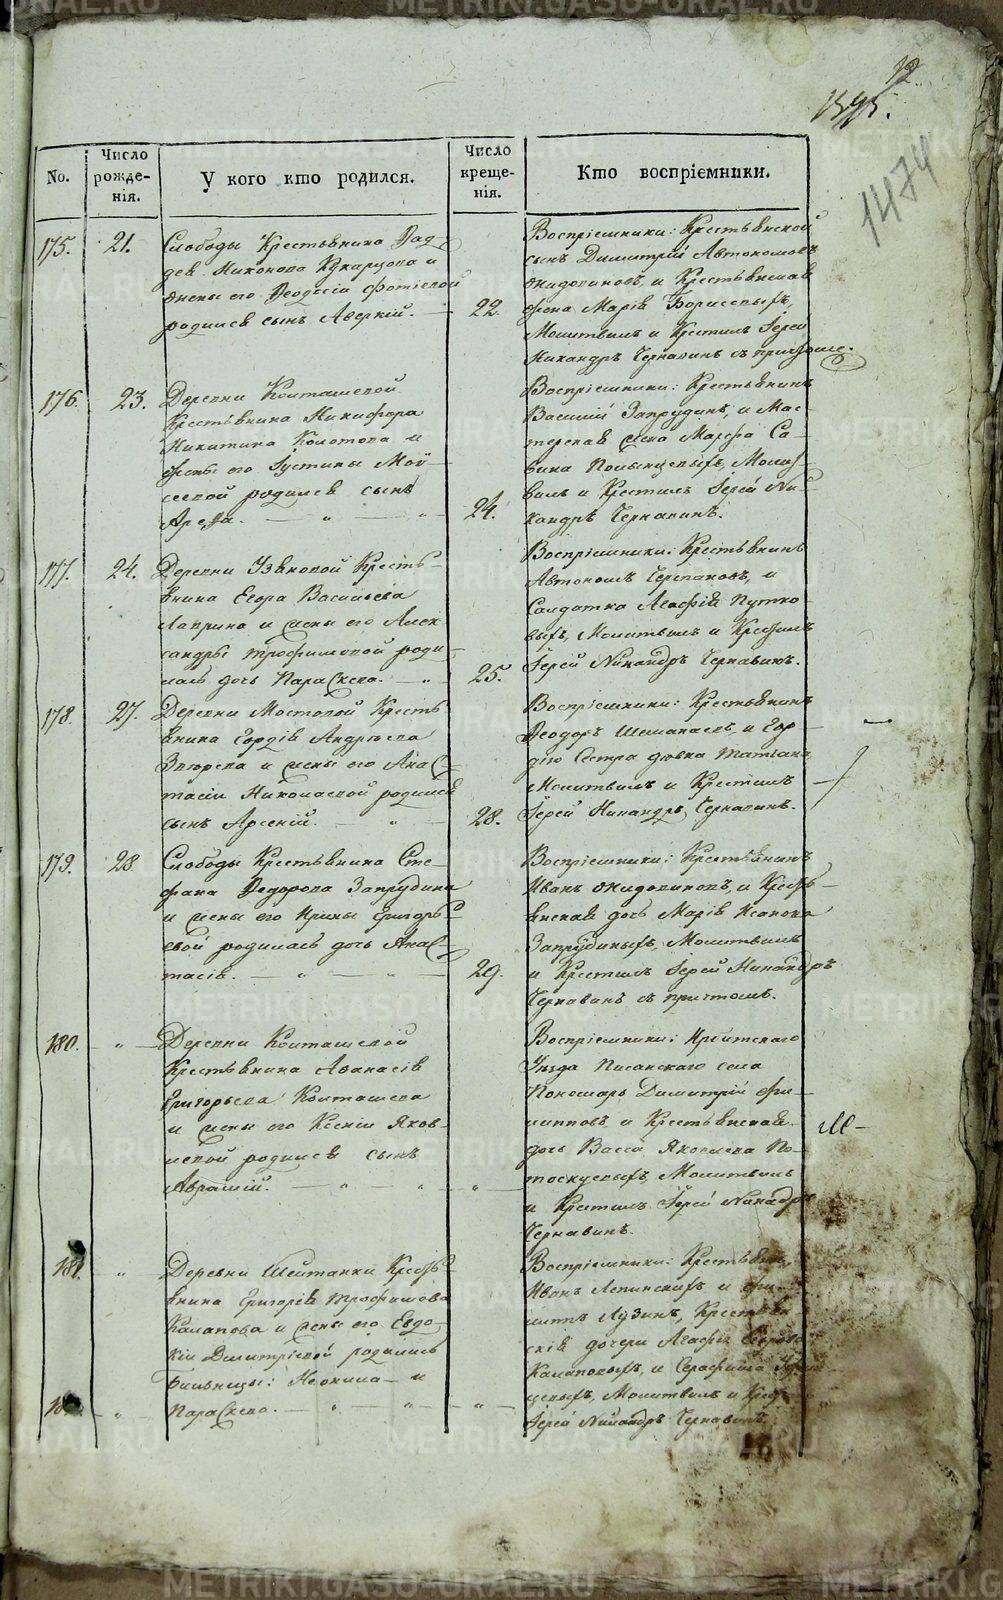 12
1395.
1474
No.
Число рожденія.
У кого кто родился.
Число крещенія.
Кто воспріемники.
175.
21.
Слободы Крестьянина Фад-
дея Никонова и
жены его Феодосіи Фотіевой
родился сынъ Аверкій.
22.
Воспріемники: Крестьянской
сынъ Димитрій Автономовъ
Жидовиновъ, и Крестьянская
жона Марія Борисовыхъ,
Молитвилъ и Крестилъ Іерей
Никандръ Чернавинъ съ причтомъ.
176.
23.
Деревни Колташевой
Крестьянина Никифора
Никитина Колотова и
жены его Іустины Мои-
сеевой родился сынъ
Арефа.
24.
Воспріемники: Крестьянинъ
Василій Запрудинъ, и Мас-
терская жена Марфа Са-
вина Молит-
вилъ и Крестилъ Іерей Ни-
кандръ Чернавинъ.
177.
24.
Деревни Узяновой Кресть-
янина Егора Васильева
Лаврина и жены его Алек-
сандры Трофимовой роди-
лась дочь Параскева.
25.
Воспріемники: Крестьянинъ
Автономъ Черепановъ, и
Салдатка Агафія Путко-
выхъ, Молитвилъ и Крестилъ
Іерей Никандръ Чернавинъ.
178.
27.
Деревни Мостовой Кресть-
янина Гордія Андреева
Звѣрева и жены его Анас-
тасіи Николаевой родился
сынъ Арсеній.
28.
Воспріемники: Крестьянинъ
Феодоръ Шемякаевъ, и Гор-
дію Сестра дѣвка Татіана
Молитвилъ и Крестилъ
Іерей Никандръ Чернавинъ.
179.
28
Слободы Крестьянина Сте-
фана Федорова Запрудина
и жены его Ирины Григорь-
евой родилась дочь Анас-
тасія.
29.
Воспріемники: Крестьянинъ
Иванъ Жидовиновъ, и Кресть-
янская дочь Марія Исакова
Запрудиныхъ, Молитвилъ
и Крестилъ Іерей Никандръ
Чернавинъ съ причтомъ.
180.
"
Деревни Колташевой
Крестьянина Афанасія
Григорьева Колташева
и жены его Ксеніи Яков-
левой родился сынъ
Аврамій.
"
Воспріемники: Ирбитскаго
Уѣзда Писанскаго села
Пономарь Димитрій Фи-
липповъ, и Крестьянская
дочь Васса Яковлева По-
тоскуевыхъ, Молитвилъ
и Крестилъ Іерей Никандръ
Чернавинъ.
181.
"
Деревни Шейтанки Кресть-
янина Григорія Трофимова
Калапова и жены его Евдо-
кіи Димитріевой родились
близницы: Неонила и
"
Параскева.
"
Воспріемники: Крестьяне,
Иванъ Лепинскихъ и Фи-
липъ Лузинъ, Крестьян-
скія дочери Агафья
Калаповыхъ, и Серафима
Молитвилъ и Крестилъ
Іерей Никандръ Чернавинъ.
METRIKI.GASO-URAL.RU